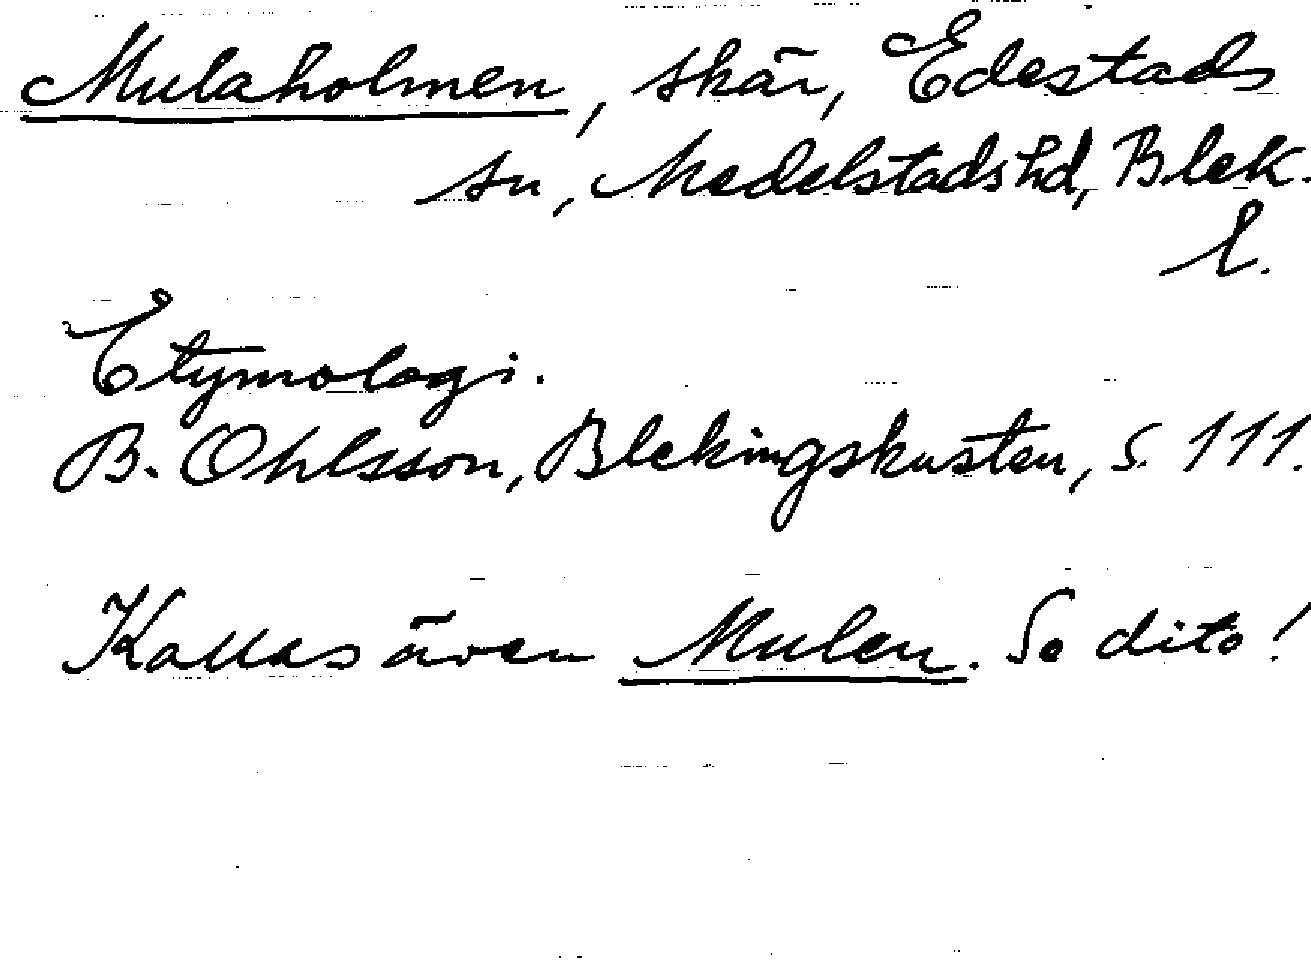 Mulaholmen, skär, Edestads
sn, Medelstads hd, Blek.
l.
Etymologi.
B. Ohlsson, Blekingskusten, s. 111.
Kallas även Mulen. Se dito!